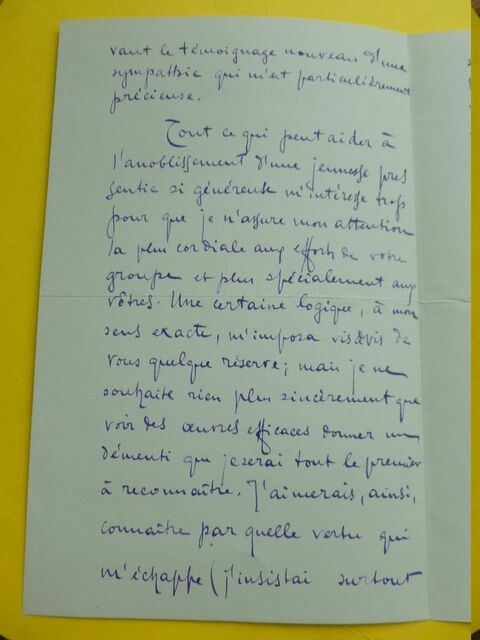 vant le témoignage nouveau d'une
sympathie qui m'est particulièrement
précieuse.
Tout ce qui peut aider à
l'anoblissement d'une jeunesse pres
sentie si généreuse m'intéresse trop
pour que je n'assure mon attention
la plus cordiale aux efforts de votre
groupe et plus spécialement aux
vôtres. Une certaine logique, à mon
sens exacte, m'imposa vis à vis de
vous quelque réserve ; mais je ne
souhaite rien plus sincèrement que
voir des œuvres efficaces donner un
démenti que je serai tout le premier
à reconnaître. J'aimerais, ainsi,
connaître par quelle vertu qui
m'échappe (j'insistai surtout